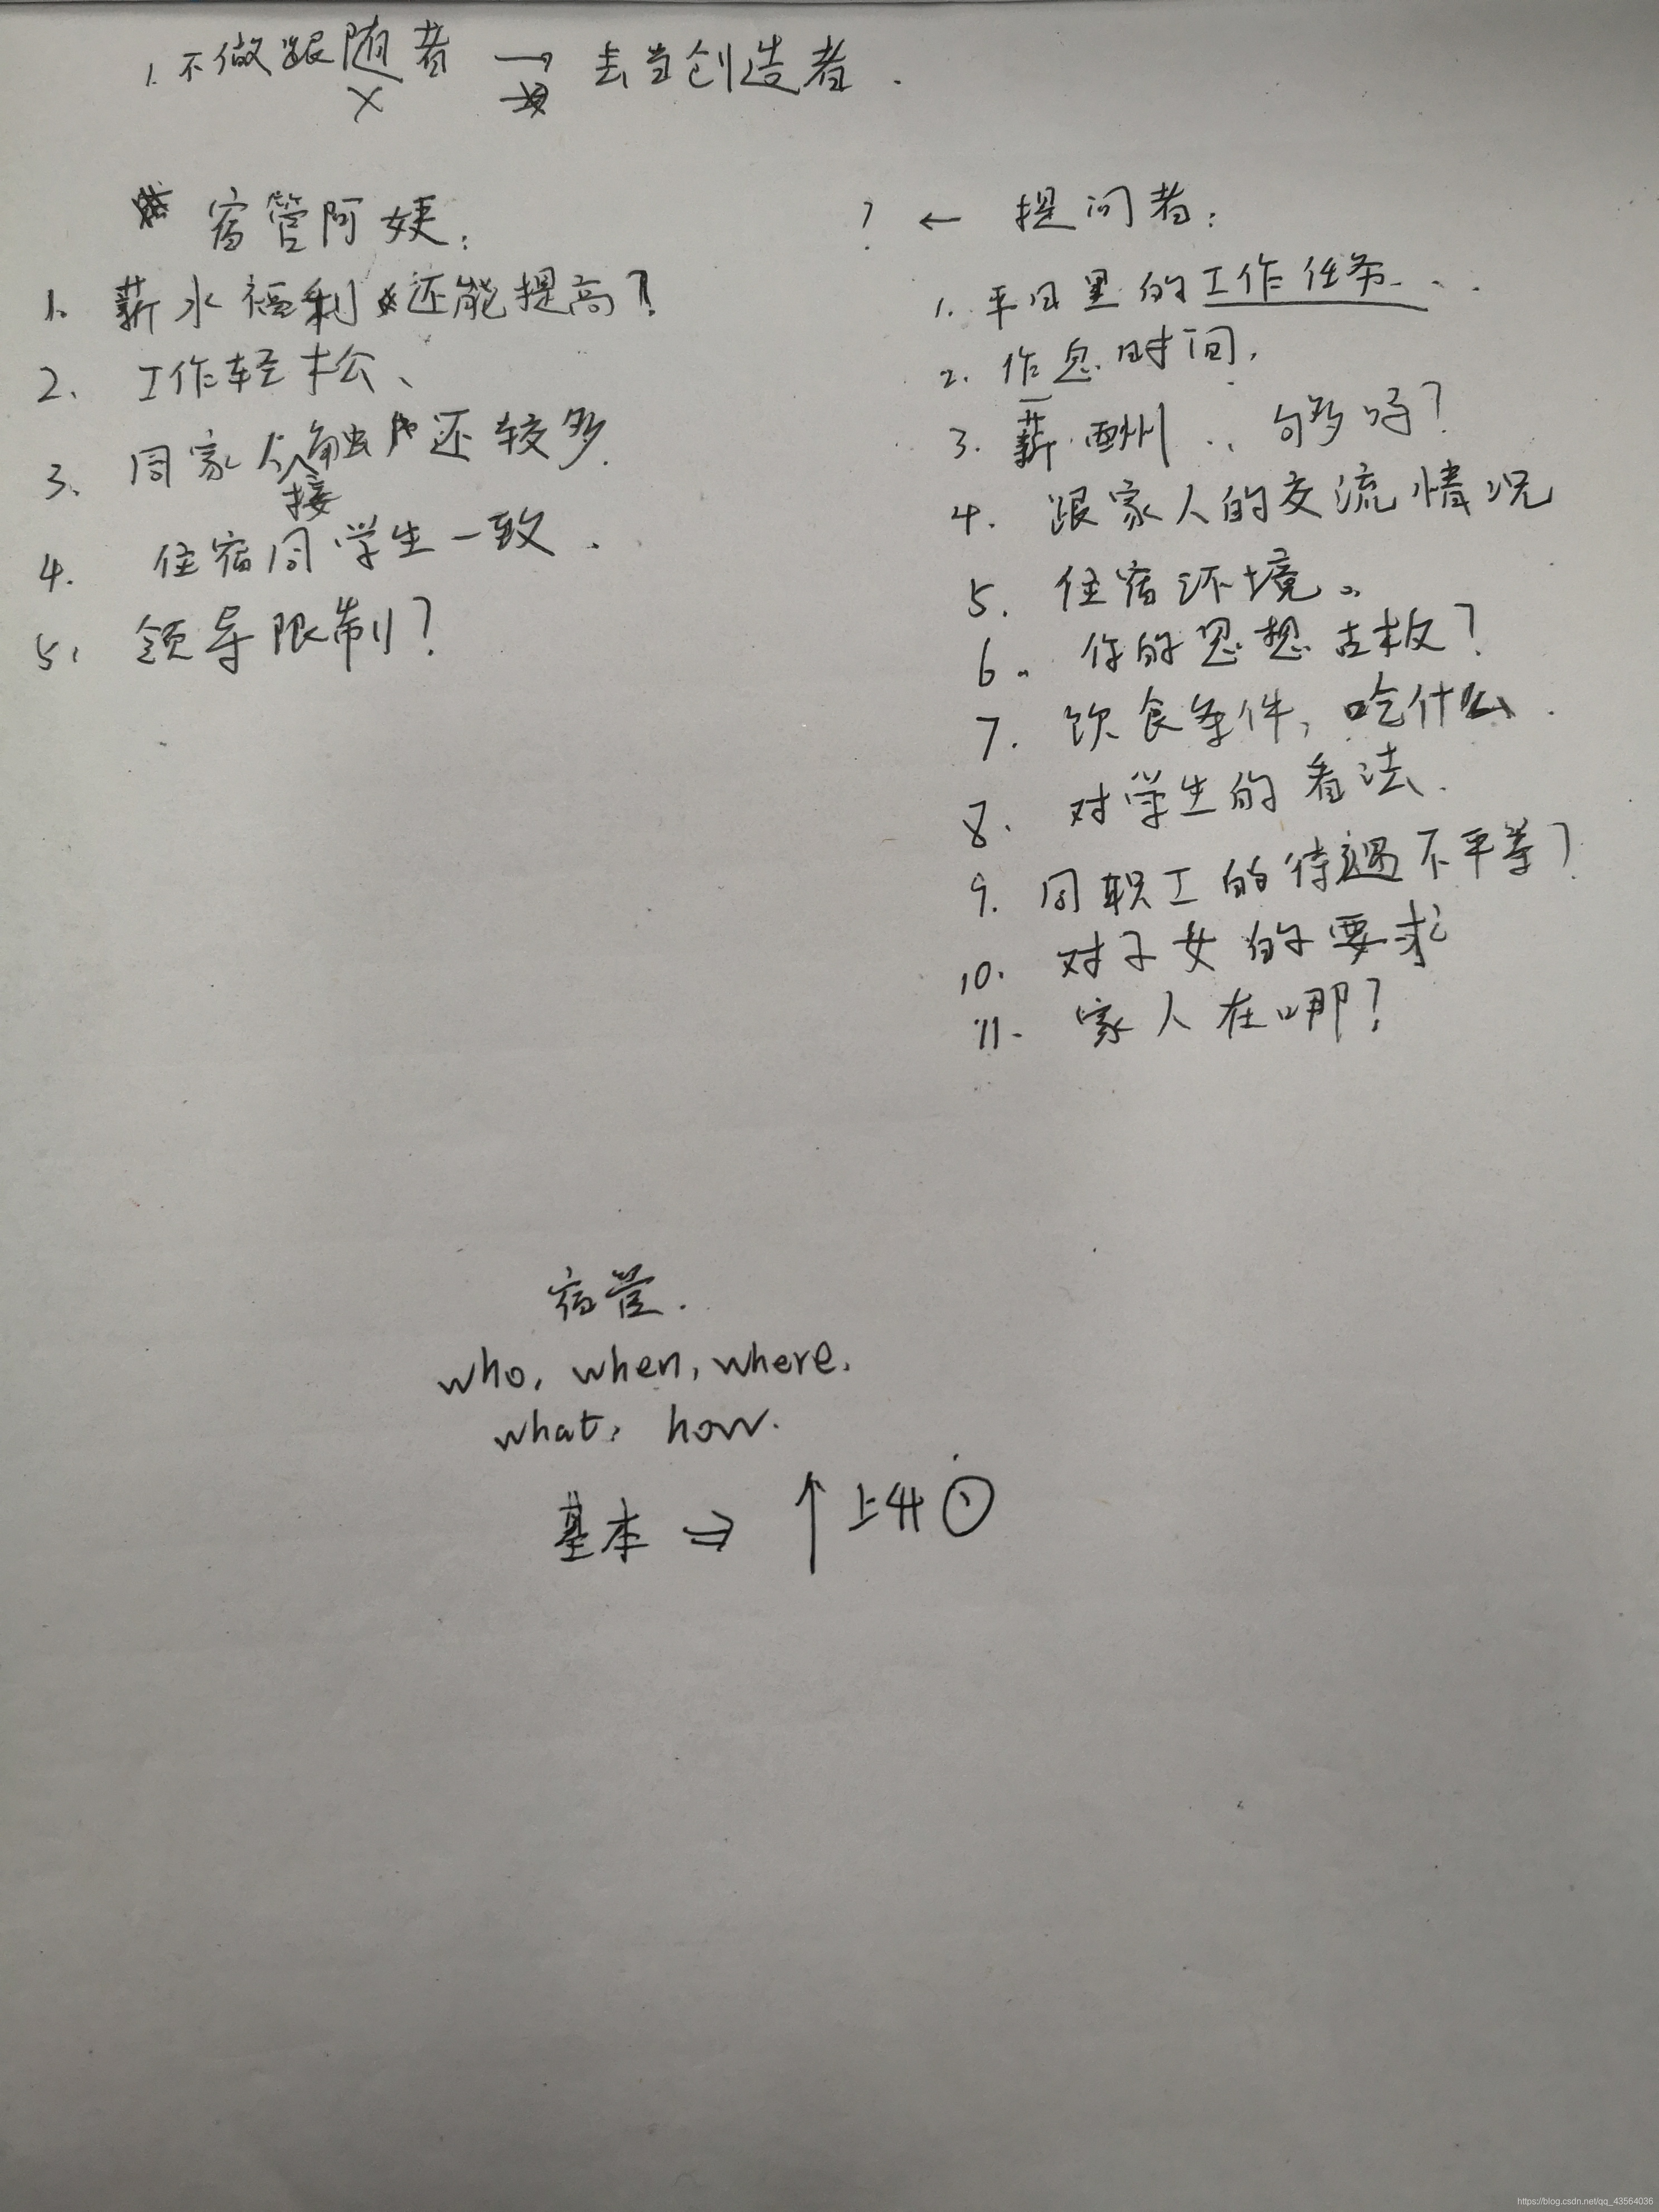 1. 不做跟随者 → 去当创造者.
宿管阿姨:
1. 薪水福利还能提高?
2. 工作轻松、
3. 同家人接触还较多.
4. 住宿同学生一致.
5. 领导限制?
? ← 提问者:
1. 平日里的工作任务...
2. 作息时间.
3. 薪酬.. 够吗?
4. 跟家人的交流情况
5. 住宿环境。
6. 你的思想古板?
7. 饮食条件, 吃什么.
8. 对学生的看法.
9. 同职工的待遇不平等?
10. 对子女的要求
11. 家人在哪?
宿管.
who, when, where.
what, how.
基本 ⇒ ↑上升
https://blog.csdn.net/qq_43564036